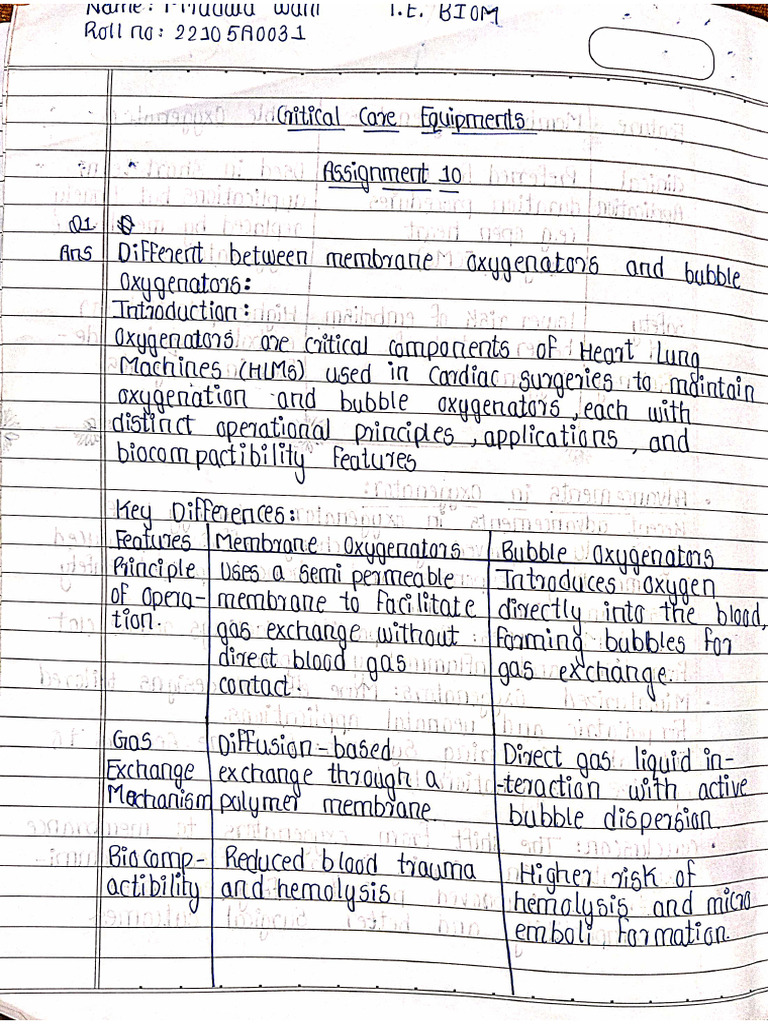 Name: Wall T.E. BIOM
Roll no: 22105A0031
Critical Care Equipments
Assignment 10
Q1.
Ans Different between membrane oxygenators and bubble
oxygenators:
Introduction:
oxygenators are critical components of Heart Lung
Machines (HLMs) used in cardiac surgeries to maintain
oxygenation and bubble oxygenators, each with
distinct operational principles, applications, and
biocompactibility features
Key Differences:
Features Membrane Oxygenators Bubble Oxygenators
Principle Uses a semi permeable Introduces oxygen
of opera- membrane to facilitate directly into the blood,
tion. gas exchange without forming bubbles for
direct blood gas gas exchange.
contact.
Gas Diffusion-based Direct gas liquid in-
Exchange exchange through a -teraction with active
Mechanism polymer membrane. bubble dispersion.
Biocomp- Reduced blood trauma Higher risk of
actibility and hemolysis hemolysis and micro
emboli formation.